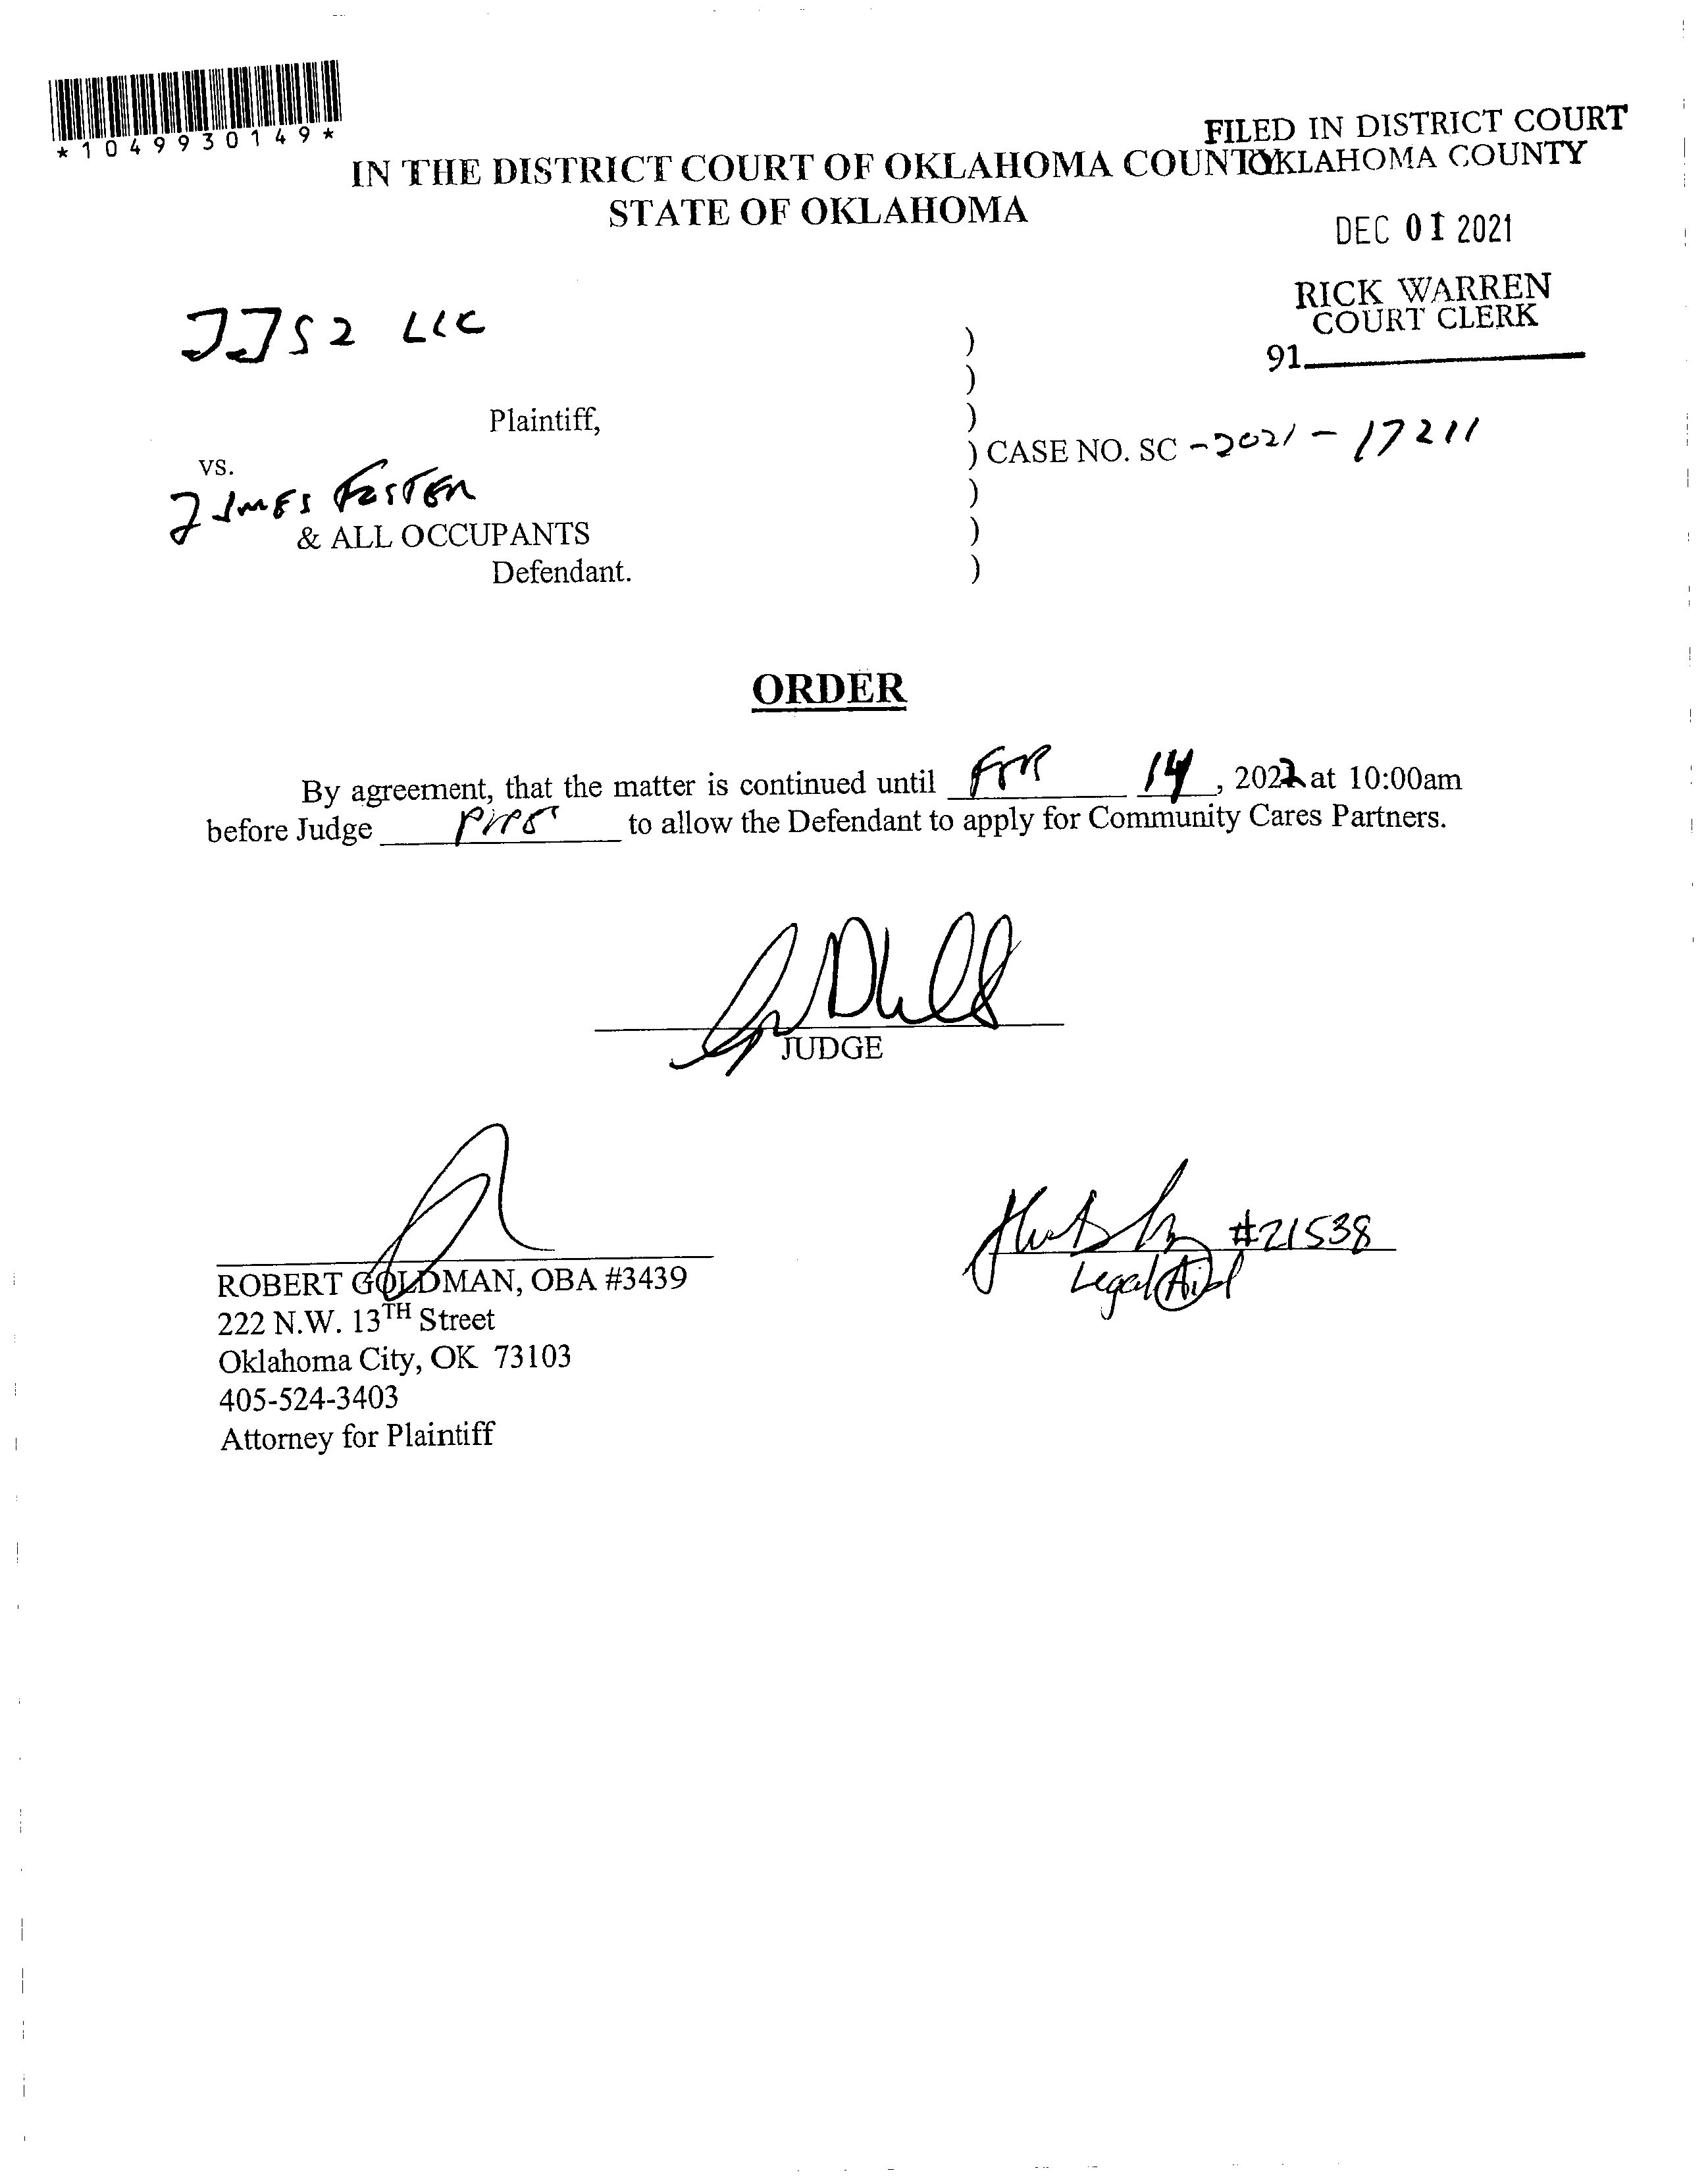 *1049930149*
FILED IN DISTRICT COURT
OKLAHOMA COUNTY
IN THE DISTRICT COURT OF OKLAHOMA COUNTY
STATE OF OKLAHOMA
DEC 01 2021
RICK WARREN
COURT CLERK
91
JJS2 LLC
)
)
Plaintiff, )
) CASE NO. SC -2021-17211
vs.
JAMES FOSTER )
& ALL OCCUPANTS )
Defendant. )
ORDER
By agreement, that the matter is continued until 14, 2022 at 10:00am
before Judge to allow the Defendant to apply for Community Cares Partners.
JUDGE
#21538
Legal Aid
ROBERT GOLDMAN, OBA #3439
222 N.W. 13TH Street
Oklahoma City, OK 73103
405-524-3403
Attorney for Plaintiff